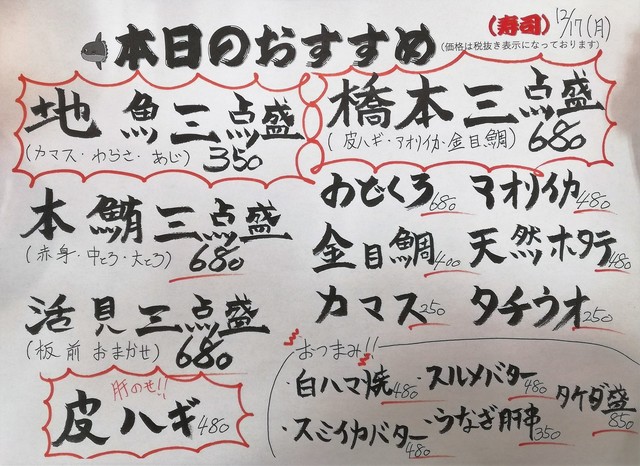 本日のおすすめ
(寿司) 12/17(月)
(価格は税抜き表示になっております)
地魚三点盛
(カマス・わらさ・あじ) 350
橋本三点盛
(皮ハギ・アオリイカ・金目鯛) 680
本鮪三点盛
(赤身・中とろ・大とろ) 680
活見三点盛
(板前おまかせ) 680
肝のせ!!
皮ハギ 480
のどくろ 680 アオリイカ 480
金目鯛 400 天然ホタテ 480
カマス 250 タチウオ 250
おつまみ!!
・白ハマ焼 480 ・スルメバター 480 タケダ盛 850
・スミイカバター 480 ・うなぎ肝串 350